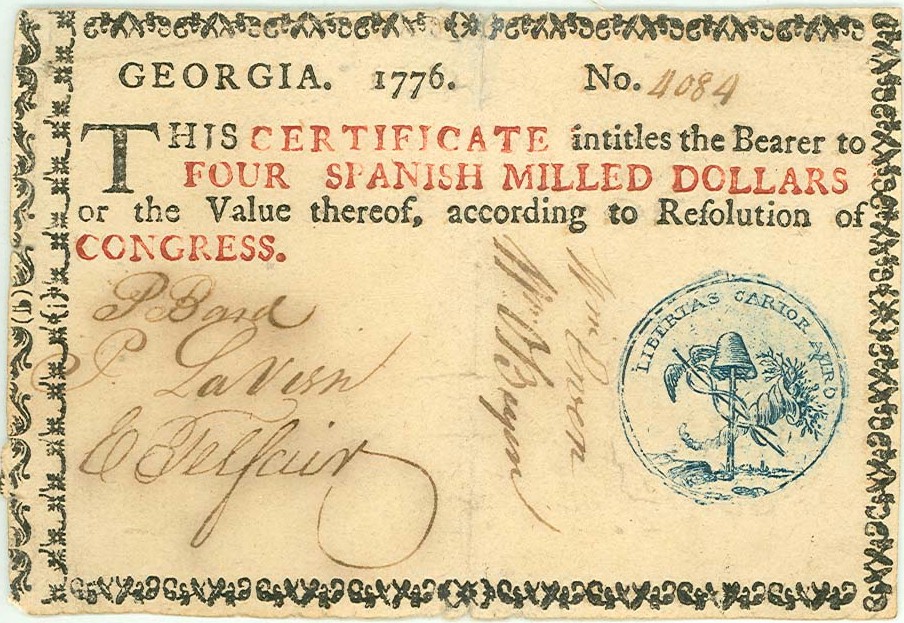 GEORGIA. 1776. No. 4084
THIS CERTIFICATE intitles the Bearer to
FOUR SPANISH MILLED DOLLARS
or the Value thereof, according to Reſolution of
CONGRESS.
P Bard
P LaVien
E Telfair
Wm O Bryen
LIBERTAS CARIOR AURO